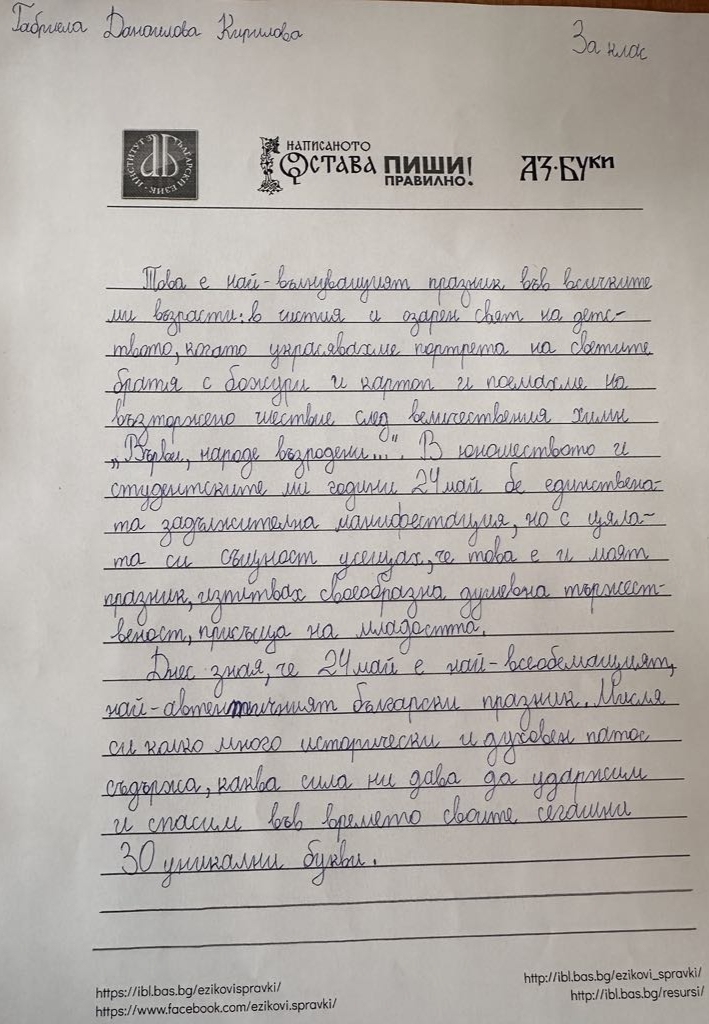 Габриела Данаилова Кирилова
3а клас
ИНСТИТУТ ЗА БЪЛГАРСКИ ЕЗИК
НАПИСАНОТО
ОСТАВА ПИШИ!
ПРАВИЛНО!
АЗ·БУКИ
Това е най-вълнуващият празник във всичките
ми възрасти: в чистия и озарен свят на детс-
твото, когато украсявахме портрета на светите
братя с божури и картоп и поемахме на
възторжено шествие след величествения химн
„Върви, народе възродени...". В юношеството и
студентските ми години 24 май бе единствена-
та задължителна манифестация, но с цяла-
та си същност усещах, че това е и моят
празник, изпитвах своеобразна душевна тържест-
веност, присъща на младостта.
Днес зная, че 24 май е най-всеобемащият,
най-автентичният български празник. Мисля
си колко много исторически и духовен патос
съдържа, каква сила ни дава да удържим
и спасим във времето своите сегашни
30 уникални букви.
https://ibl.bas.bg/ezikovispravki/
https://www.facebook.com/ezikovi.spravki/
http://ibl.bas.bg/ezikovi_spravki/
http://ibl.bas.bg/resursi/